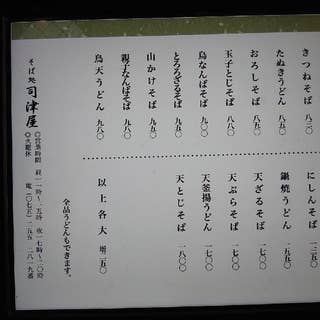 きつねそば 八三〇
たぬきうどん 八五〇
おろしそば 八五〇
玉子とじそば 八八〇
鳥なんばそば 九〇〇
とろろざるそば 九五〇
山かけそば 九五〇
親子なんばそば 九八〇
鳥天うどん 九八〇
にしんそば 一二五〇
鍋焼うどん 一五五〇
天ざるそば 一七〇〇
天ぷらそば 一七〇〇
天釜揚うどん 一七〇〇
天とじそば 一八〇〇
以上各大 増二五〇
全品うどんもできます。
そば処 司津屋
〇営業時間 昼一一時〜一五時 夜一七時〜二〇時
〇火曜休 電二〇七五)二五五 二八一九番